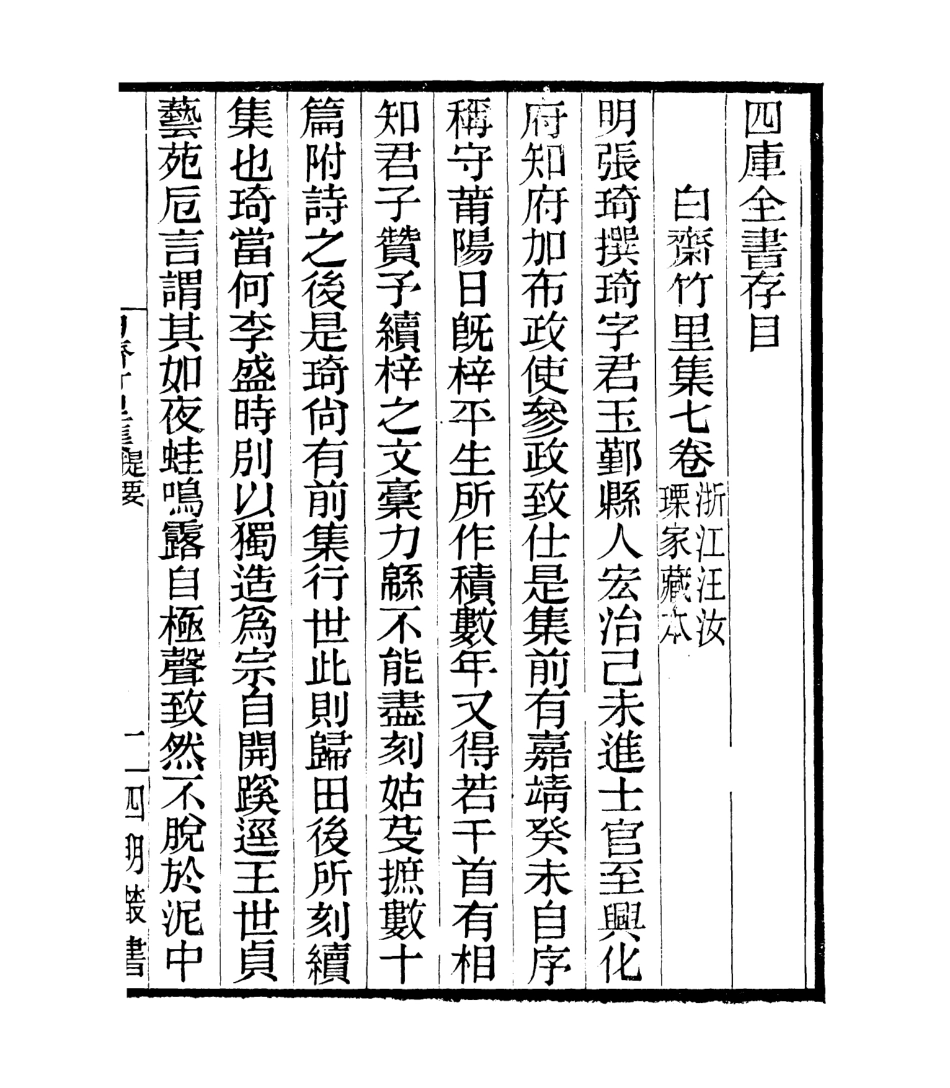 四庫全書存目
白齋竹里集七卷浙江汪汝
瑮家藏本
明張琦撰琦字君玉鄞縣人宏治己未進士官至興化
府知府加布政使參政致仕是集前有嘉靖癸未自序
稱守莆陽日旣梓平生所作積數年又得若干首有相
知君子贊予續梓之文稾力緜不能盡刻姑芟摭數十
篇附詩之後是琦尙有前集行世此則歸田後所刻續
集也琦當何李盛時別以獨造爲宗自開蹊逕王世貞
藝苑卮言謂其如夜蛙鳴露自極聲致然不脫於泥中
白齋竹里集提要
一
四明叢書